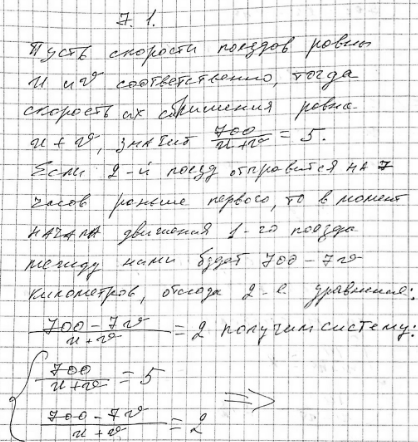 7.1.
Пусть скорости поездов равны
u и v соответственно, тогда
скорость их сближения равна
u + v, значит 700/(u+v) = 5.
Если 2-й поезд отправится на 7
часов раньше первого, то в момент
начала движения 1-го поезда
между ними будет 700 - 7v
километров, отсюда 2-е уравнение:
(700 - 7v)/(u+v) = 2 получим систему:
{ 700/(u+v) = 5
(700 - 7v)/(u+v) = 2 =>